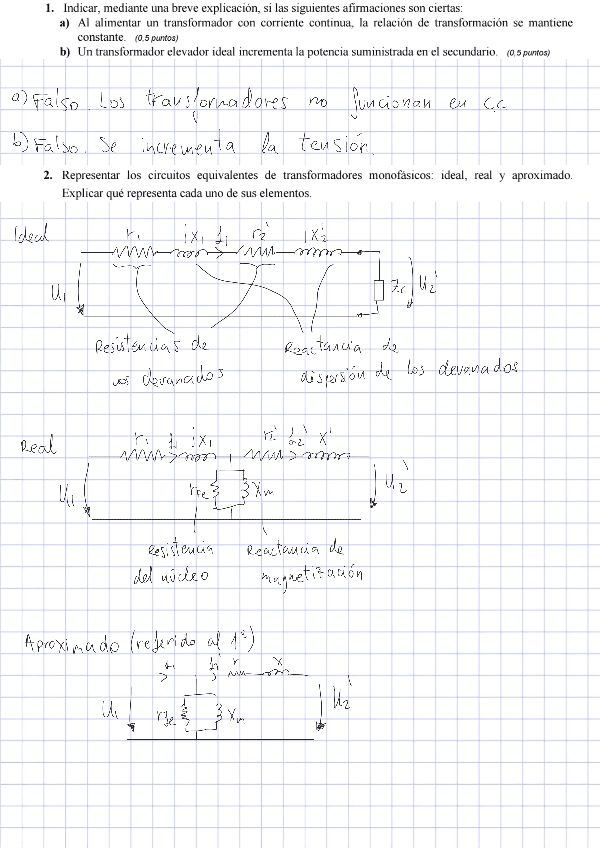 1. Indicar, mediante una breve explicación, si las siguientes afirmaciones son ciertas:
a) Al alimentar un transformador con corriente continua, la relación de transformación se mantiene
constante. (0,5 puntos)
b) Un transformador elevador ideal incrementa la potencia suministrada en el secundario. (0,5 puntos)
a) Falso. Los transformadores no funcionan en C.C
b) Falso. Se incrementa la tensión.
2. Representar los circuitos equivalentes de transformadores monofásicos: ideal, real y aproximado.
Explicar qué representa cada uno de sus elementos.
Ideal r₁ jX₁ r₂' jX₂'
U₁ Zc U₂'
Resistencias de Reactancia de
los devanados dispersión de los devanados
Real r₁ jX₁
U₁ rfe Xm U₂'
Resistencia Reactancia de
del núcleo magnetización
Aproximado (referido al 1º)
r X
U₁ rfe Xm U₂'